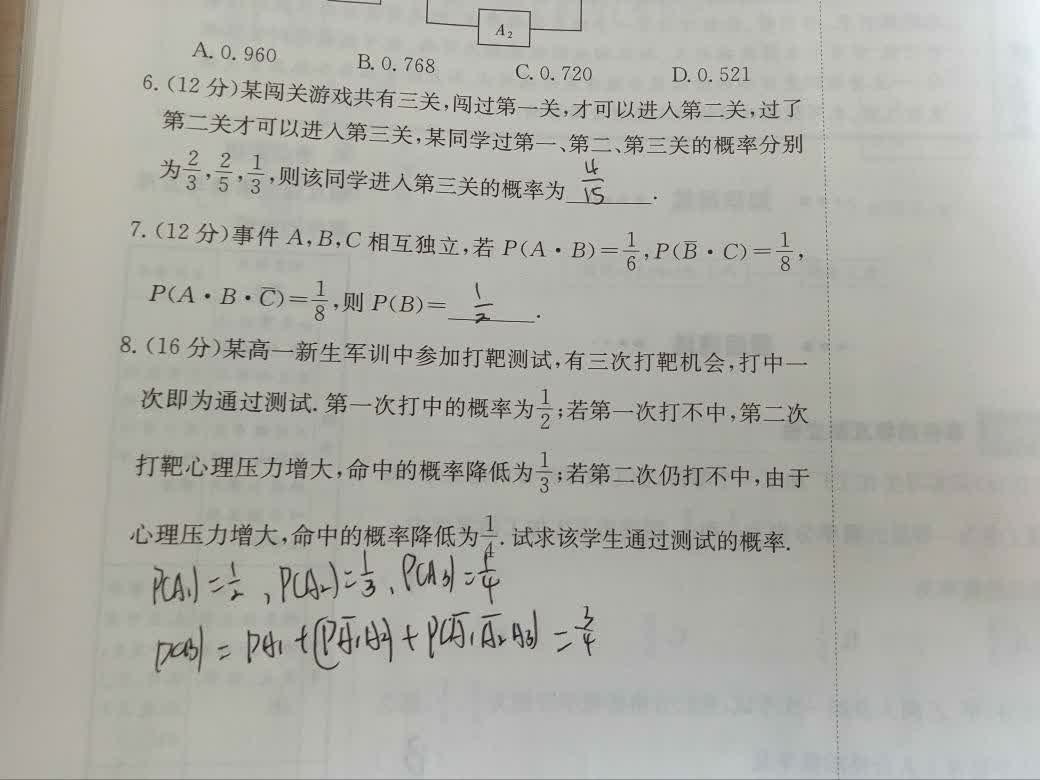 A₂
A. 0.960 B. 0.768 C. 0.720 D. 0.521
6. (12 分)某闯关游戏共有三关,闯过第一关,才可以进入第二关,过了
第二关才可以进入第三关,某同学过第一、第二、第三关的概率分别
为2/3,2/5,1/3,则该同学进入第三关的概率为 4/15 .
7. (12 分)事件 A,B,C 相互独立,若 P(A·B)=1/6,P(B̄·C)=1/8,
P(A·B·C̄)=1/8,则 P(B)= 1/2 .
8. (16 分)某高一新生军训中参加打靶测试,有三次打靶机会,打中一
次即为通过测试. 第一次打中的概率为1/2;若第一次打不中,第二次
打靶心理压力增大,命中的概率降低为1/3;若第二次仍打不中,由于
心理压力增大,命中的概率降低为1/4. 试求该学生通过测试的概率.
P(A₁)=1/2, P(A₂)=1/3, P(A₃)=1/4
P(B)=PA₁+(PĀ₁A₂)+P(Ā₁Ā₂A₃)=3/4